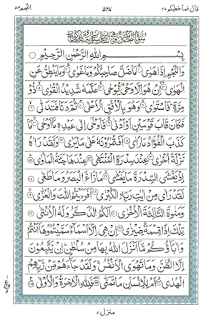 النجم ٥٣ قال فما خطبكم ٢٧
بِسْمِ اللهِ الرَّحْمٰنِ الرَّحِيْمِ
وَالنَّجْمِ اِذَا هَوٰى ۙ مَا ضَلَّ صَاحِبُكُمْ وَمَا غَوٰى ۚ وَمَا يَنْطِقُ عَنِ
الْهَوٰى ؕ اِنْ هُوَ اِلَّا وَحْيٌ يُّوْحٰى ۙ عَلَّمَهٗ شَدِيْدُ الْقُوٰى ۙ ذُوْ
مِرَّةٍ ؕ فَاسْتَوٰى ۙ وَهُوَ بِالْاُفُقِ الْاَعْلٰى ؕ ثُمَّ دَنَا فَتَدَلّٰى ۙ
فَكَانَ قَابَ قَوْسَيْنِ اَوْ اَدْنٰى ۚ فَاَوْحٰۤى اِلٰى عَبْدِهٖ مَاۤ اَوْحٰى ؕ مَا
كَذَبَ الْفُؤَادُ مَا رَاٰى اَفَتُمٰرُوْنَهٗ عَلٰى مَا يَرٰى وَلَقَدْ رَاٰهُ
نَزْلَةً اُخْرٰى ۙ عِنْدَ سِدْرَةِ الْمُنْتَهٰى عِنْدَهَا جَنَّةُ الْمَاْوٰى ؕ
اِذْ يَغْشَى السِّدْرَةَ مَا يَغْشٰى ۙ مَا زَاغَ الْبَصَرُ وَمَا طَغٰى
لَقَدْ رَاٰى مِنْ اٰيٰتِ رَبِّهِ الْكُبْرٰى اَفَرَءَيْتُمُ اللّٰتَ وَالْعُزّٰى ۙ
وَمَنٰوةَ الثَّالِثَةَ الْاُخْرٰى اَلَكُمُ الذَّكَرُ وَلَهُ الْاُنْثٰى
تِلْكَ اِذًا قِسْمَةٌ ضِيْزٰى اِنْ هِيَ اِلَّاۤ اَسْمَآءٌ سَمَّيْتُمُوْهَاۤ اَنْتُمْ
وَاٰبَآؤُكُمْ مَّاۤ اَنْزَلَ اللهُ بِهَا مِنْ سُلْطٰنٍ ؕ اِنْ يَّتَّبِعُوْنَ
اِلَّا الظَّنَّ وَمَا تَهْوَى الْاَنْفُسُ ۚ وَلَقَدْ جَآءَهُمْ مِّنْ رَّبِّهِمُ
الْهُدٰى ؕ اَمْ لِلْاِنْسَانِ مَا تَمَنّٰى ۖ فَلِلّٰهِ الْاٰخِرَةُ وَالْاُوْلٰى
منزل ٧